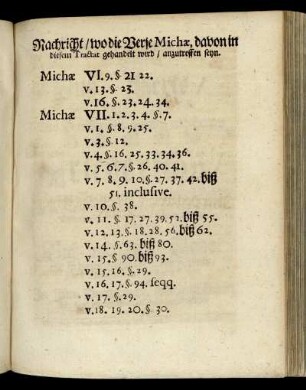 Nachricht / wo die Verse Michæ, davon in
diesem Tractat gehandelt wird / anzutreffen seyn.
Michæ VI. 9. §. 21 22.
v. 13. §. 23.
v. 16. §. 23. 24. 34.
Michæ VII. 1. 2. 3. 4. §. 7.
v. 1. §. 8. 9. 25.
v. 3. §. 12.
v. 4. §. 16. 25. 33. 34. 36.
v. 5. 6. 7. §. 26. 40. 41.
v. 7. 8. 9. 10. §. 27. 37. 42. biß
51. inclusive.
v. 10. §. 38.
v. 11. §. 17. 27. 39. 52. biß 55.
v. 12. 13. §. 18. 28. 56. biß 62.
v. 14. §. 63. biß 80.
v. 15. § 90. biß 93.
v. 15. 16. §. 29.
v. 16. 17. §. 94. seqq.
v. 17. §. 29.
v. 18. 19. 20. §. 30.